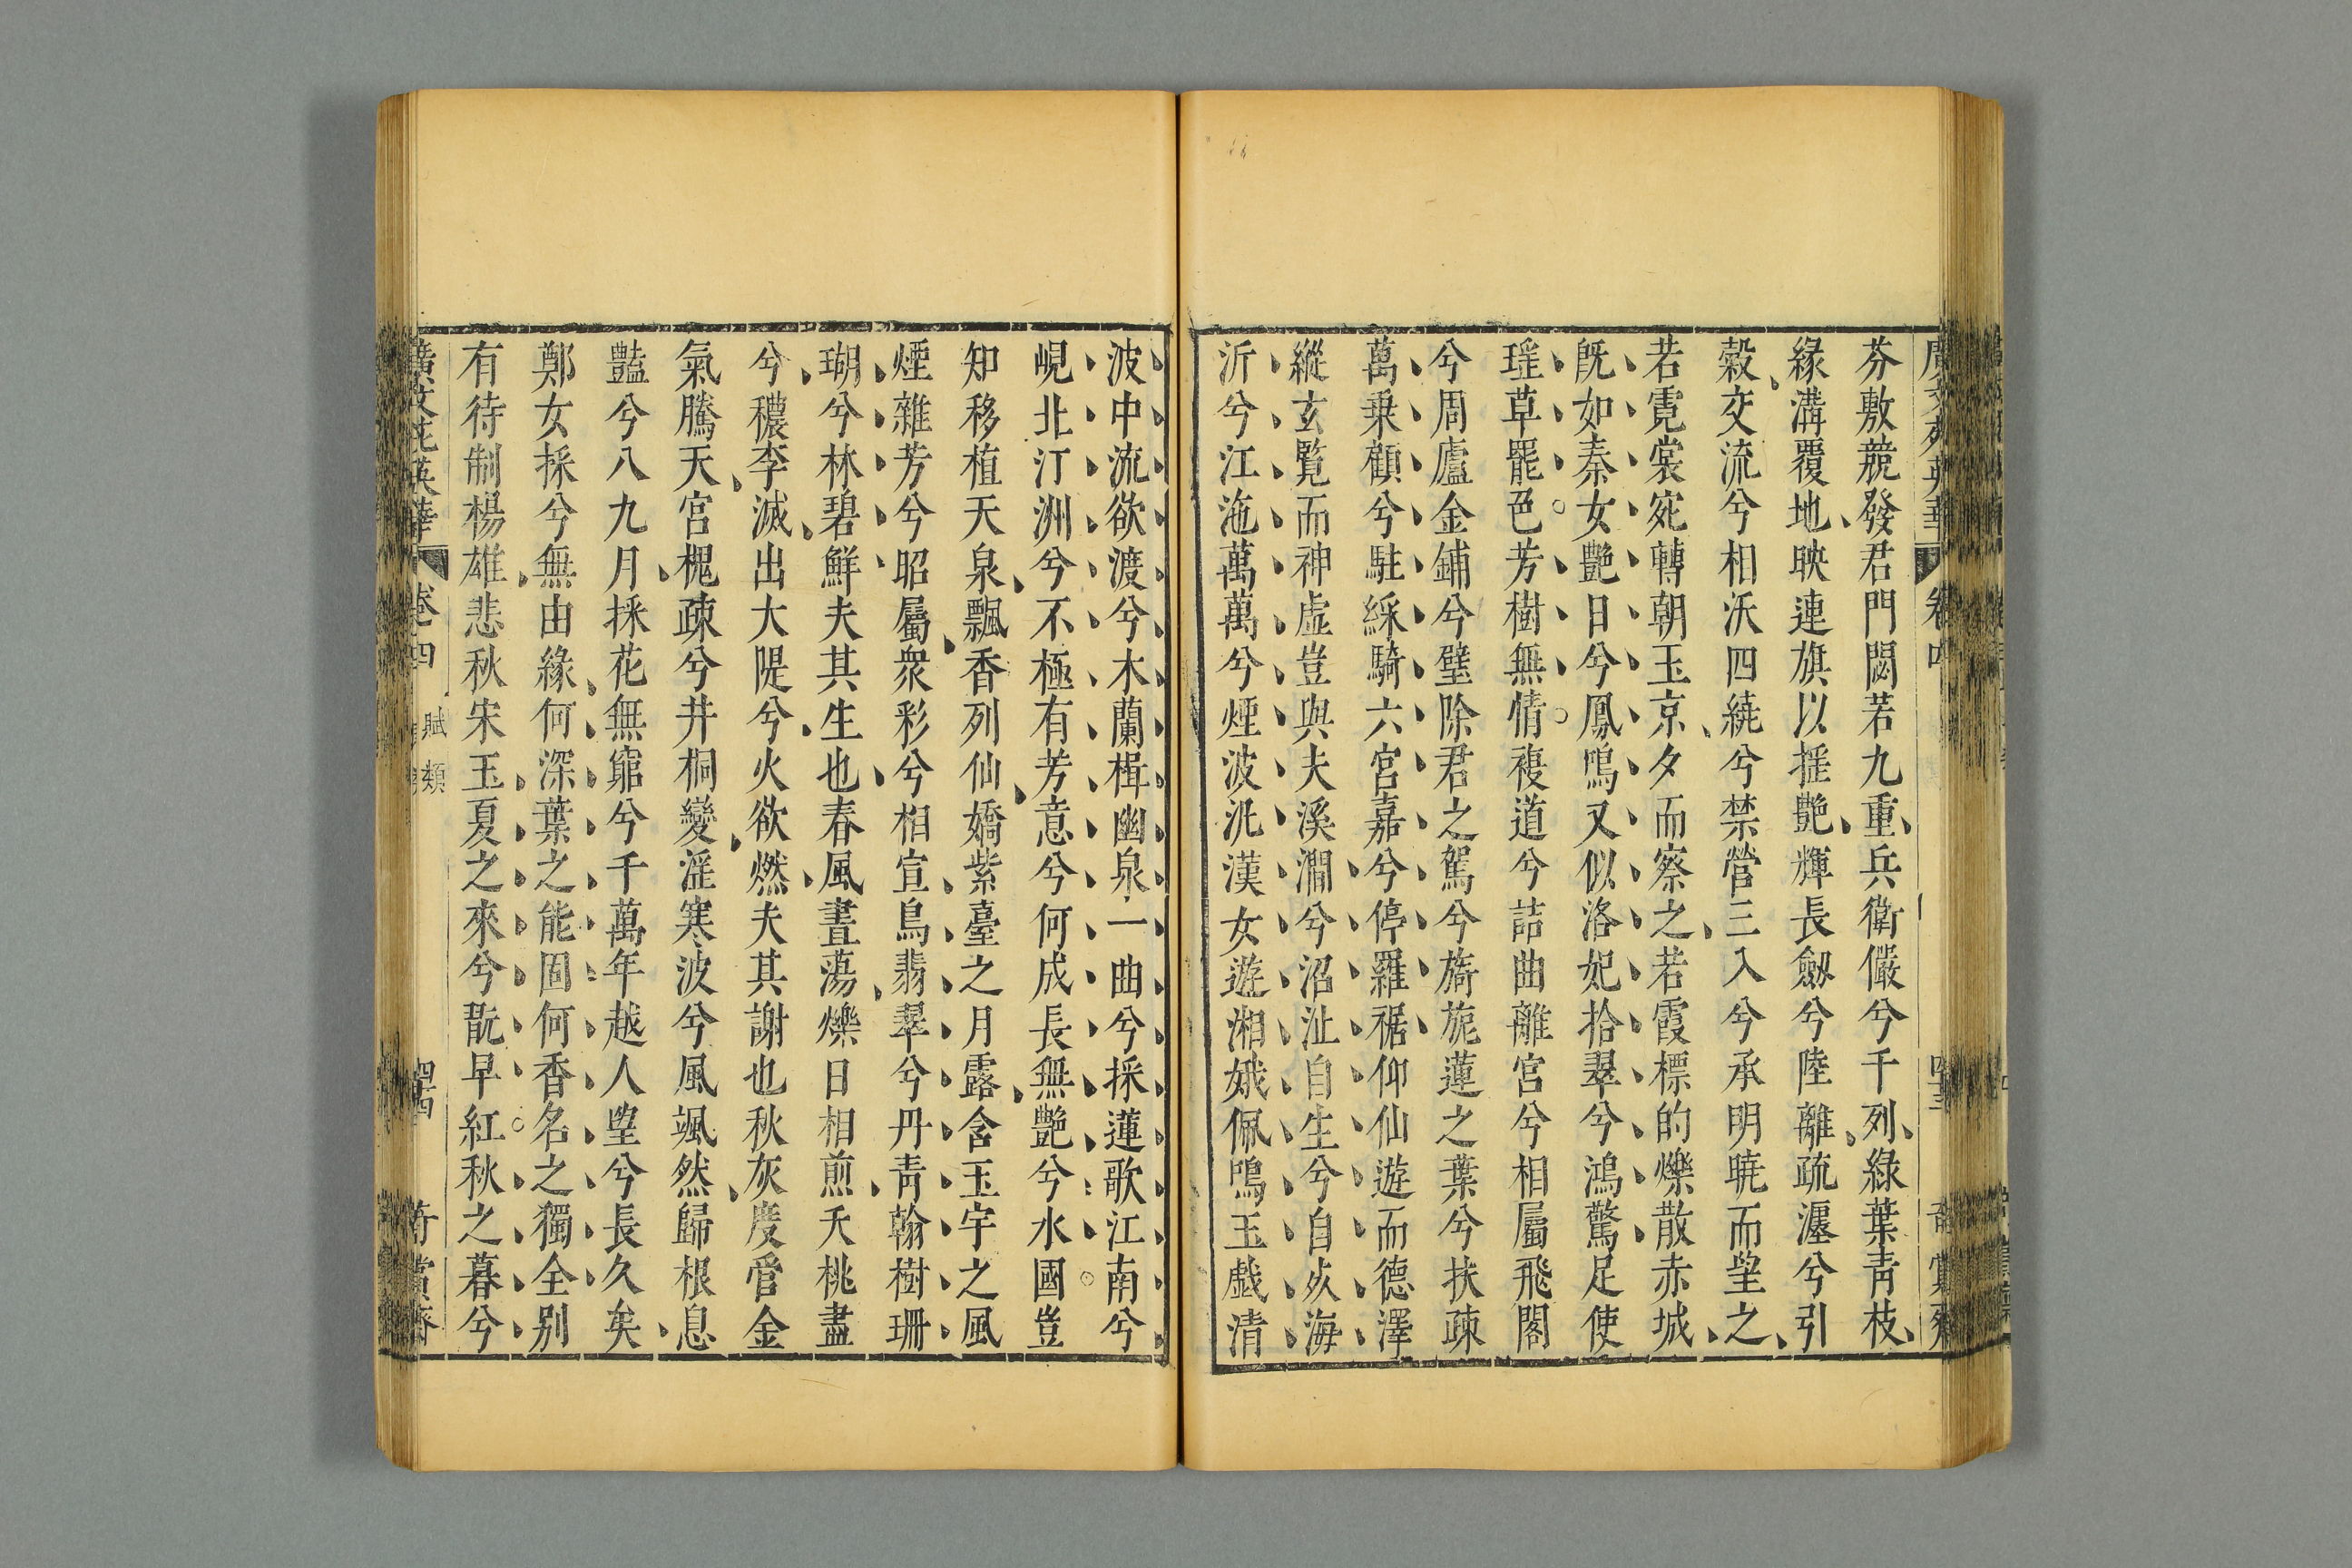 芬敷競發君門閟若九重兵衛儼兮千列綠葉青枝
緣溝覆地映連旗以摇艷輝長劒兮陸離疏漚兮引
穀交流兮相沃四繞兮禁營三入兮承明曉而望之
若霓裳宛轉朝玉京夕而察之若霞標的爍散赤城
既如秦女艷日兮鳳鳴又似洛妃拾翠兮鴻驚足使
瑤草罷色芳樹無情複道兮詰曲離宮兮相屬飛閣
兮周廬金鋪兮璧除君之駕兮旖旎蓮之葉兮扶疎
萬乗顧兮駐綵騎六宮嘉兮停羅裾仰仙遊而德澤
縱玄覽而神虛豈與夫溪澗兮沼沚自生兮自㱙海
沂兮江沲萬萬兮煙波汎漢女遊湘娥佩鳴玉戲清
波中流欲渡兮木蘭楫幽泉一曲兮採蓮歌江南兮
峴北汀洲兮不極有芳意兮何成長無艷兮水國豈
知移植天泉飄香列仙嬌紫臺之月露含玉宇之風
煙雜芳兮昭屬衆彩兮相宣鳥翡翠兮丹青翰樹珊
瑚兮林碧鮮夫其生也春風晝蕩爍日相煎夭桃盡
兮穠李滅出大隄兮火欲燃夫其謝也秋灰度管金
氣騰天宮槐疎兮井桐變涯寒波兮風颯然歸根息
豔兮八九月採花無窮兮千萬年越人望兮長久矣
鄭女採兮無由緣何深葉之能固何香名之獨全别
有待制楊雄悲秋宋玉夏之來兮翫早紅秋之暮兮
廣文苑英華 卷四 賦類 四十四 奇賞齋